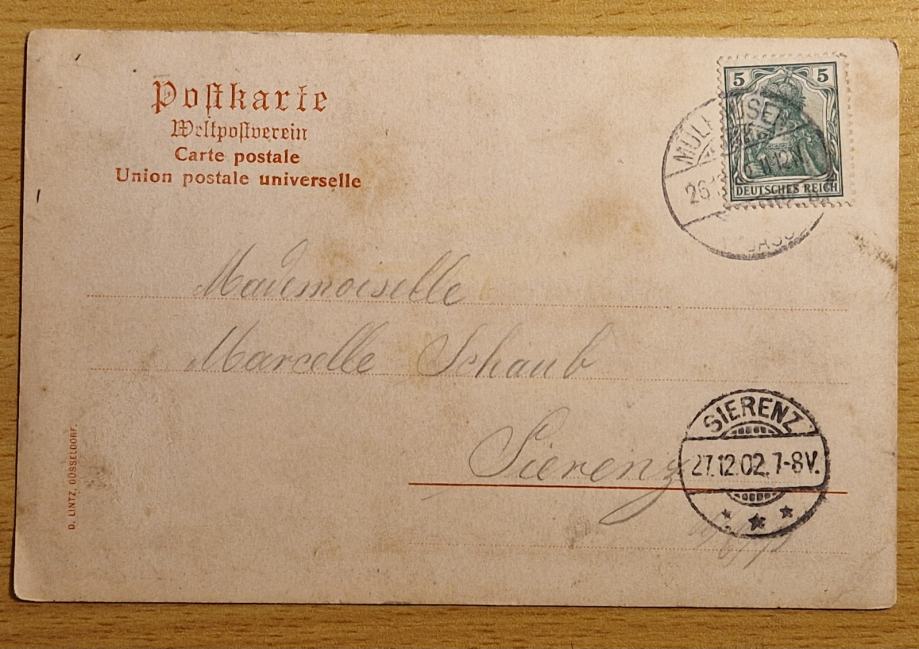 Postkarte
Weltpostverein
Carte postale
Union postale universelle
5 5
DEUTSCHES REICH
MÜLHAUSEN
Mademoiselle
Marcelle Schaub
Sierenz
SIERENZ
27.12.02.7-8V.
D. LINTZ, DÜSSELDORF.